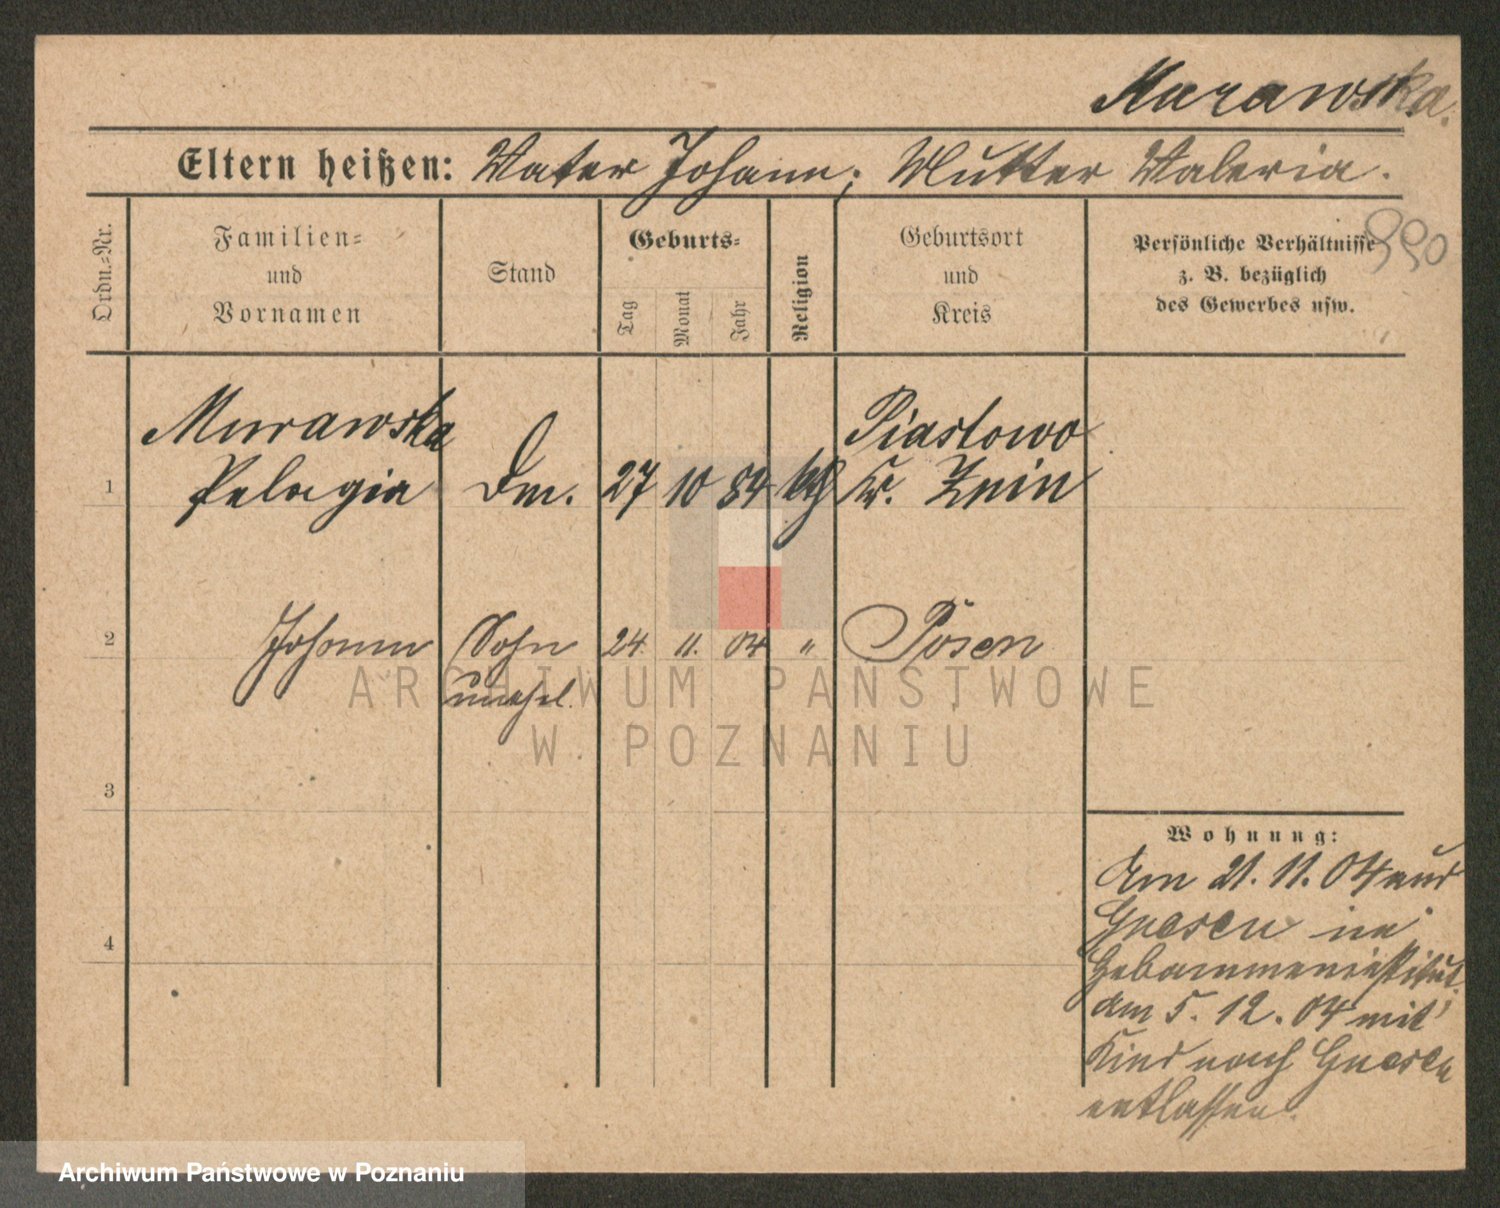 Murawska.
Eltern heißen: Vater Johann; Mutter Valeria.
Ordn.-Nr.
Familien-
und
Vornamen
Stand
Geburts-
Tag
Monat
Jahr
Religion
Geburtsort
und
Kreis
Persönliche Verhältnisse
z. B. bezüglich
des Gewerbes usw.
990
1
Murawska
Pelagia
Dm.
27
10
84
kth
Piastowo
Kr. Znin
2
Johann
Sohn
unehel.
24
11.
04
"
Posen
3
4
Wohnung:
Am 21. 11. 04 aus
Gnesen im
Hebammeninstitut.
Am 5. 12. 04 mit
Kind nach Gnesen
entlassen.
ARCHIWUM PAŃSTWOWE
W POZNANIU
Archiwum Państwowe w Poznaniu